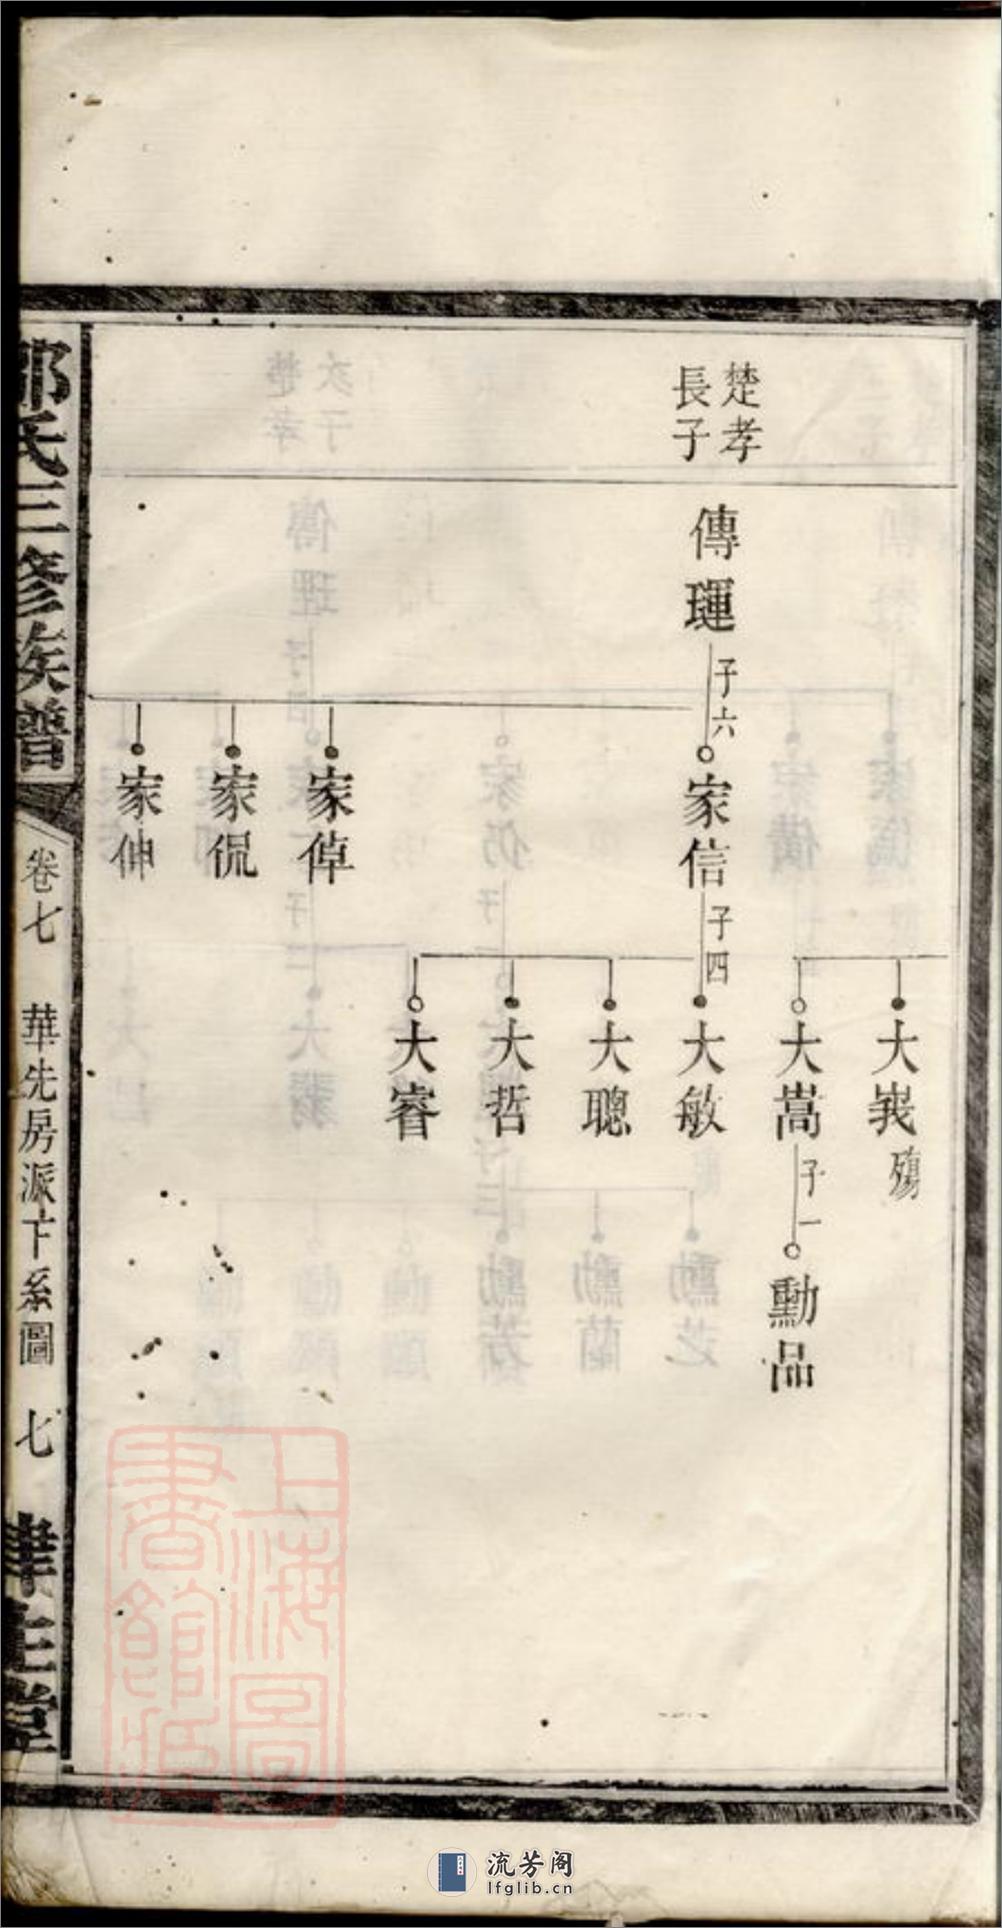 楚孝
長子
傳璭
子六
家信
家倬
家侃
家伸
子四
大峩
殤
大嵩
大敏
大聰
大哲
大睿
子一
勳品
氏三修族譜
卷七
華先房派下系圖
七
堂
上海圖
書館藏
流芳阁
lfglib.cn